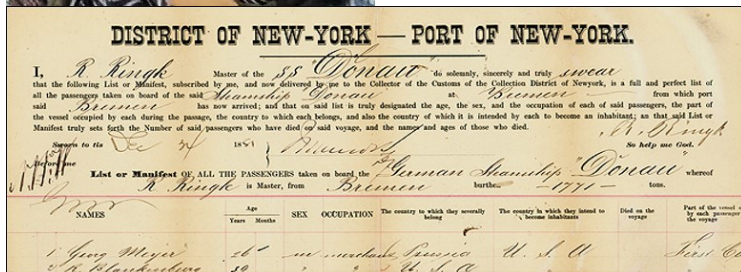 DISTRICT OF NEW-YORK — PORT OF NEW-YORK.
I, R Ringk Master of the SS "Donau" do solemnly, sincerely and truly swear
that the following List or Manifest, subscribed by me, and now delivered by me to the Collector of the Customs of the Collection District of Newyork, is a full and perfect list of
all the passengers taken on board of the said Steamship Donau at Bremen from which port
said Bremen has now arrived; and that on said list is truly designated the age, the sex, and the occupation of each of said passengers, the part of
the vessel occupied by each during the passage, the country to which each belongs, and also the country of which it is intended by each to become an inhabitant; an that said List or
Manifest truly sets forth the Number of said passengers who have died on said voyage, and the names and ages of those who died.
R. Ringk
Sworn to tis Dec 1881 So help me God.
Before me
List or Manifest OF ALL THE PASSENGERS taken on board the German Steamship "Donau" whereof
R Ringk is Master, from Bremen burthen 1771 tons.
NAMES Age Years Months SEX OCCUPATION The country to which they severally belong The country in which they intend to become inhabitants Died on the voyage Part of the vessel by each passenger the voyage
1 Georg Meyer 26 m merchant Prussia U. S. A First
2 Blankenburg 39 " " " U. S. A